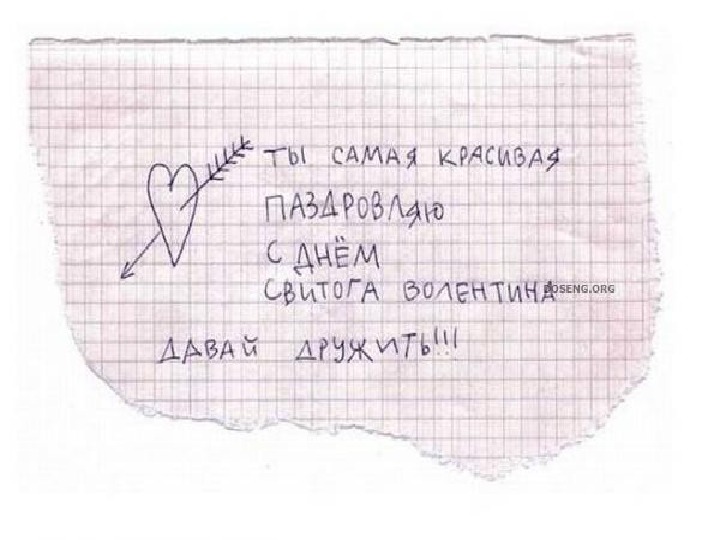 ТЫ САМАЯ КРАСИВАЯ
ПАЗДРОВЛЯЮ
С ДНЁМ
СВИТОГА ВОЛЕНТИНА
DOSENG.ORG
ДАВАЙ ДРУЖИТЬ!!!